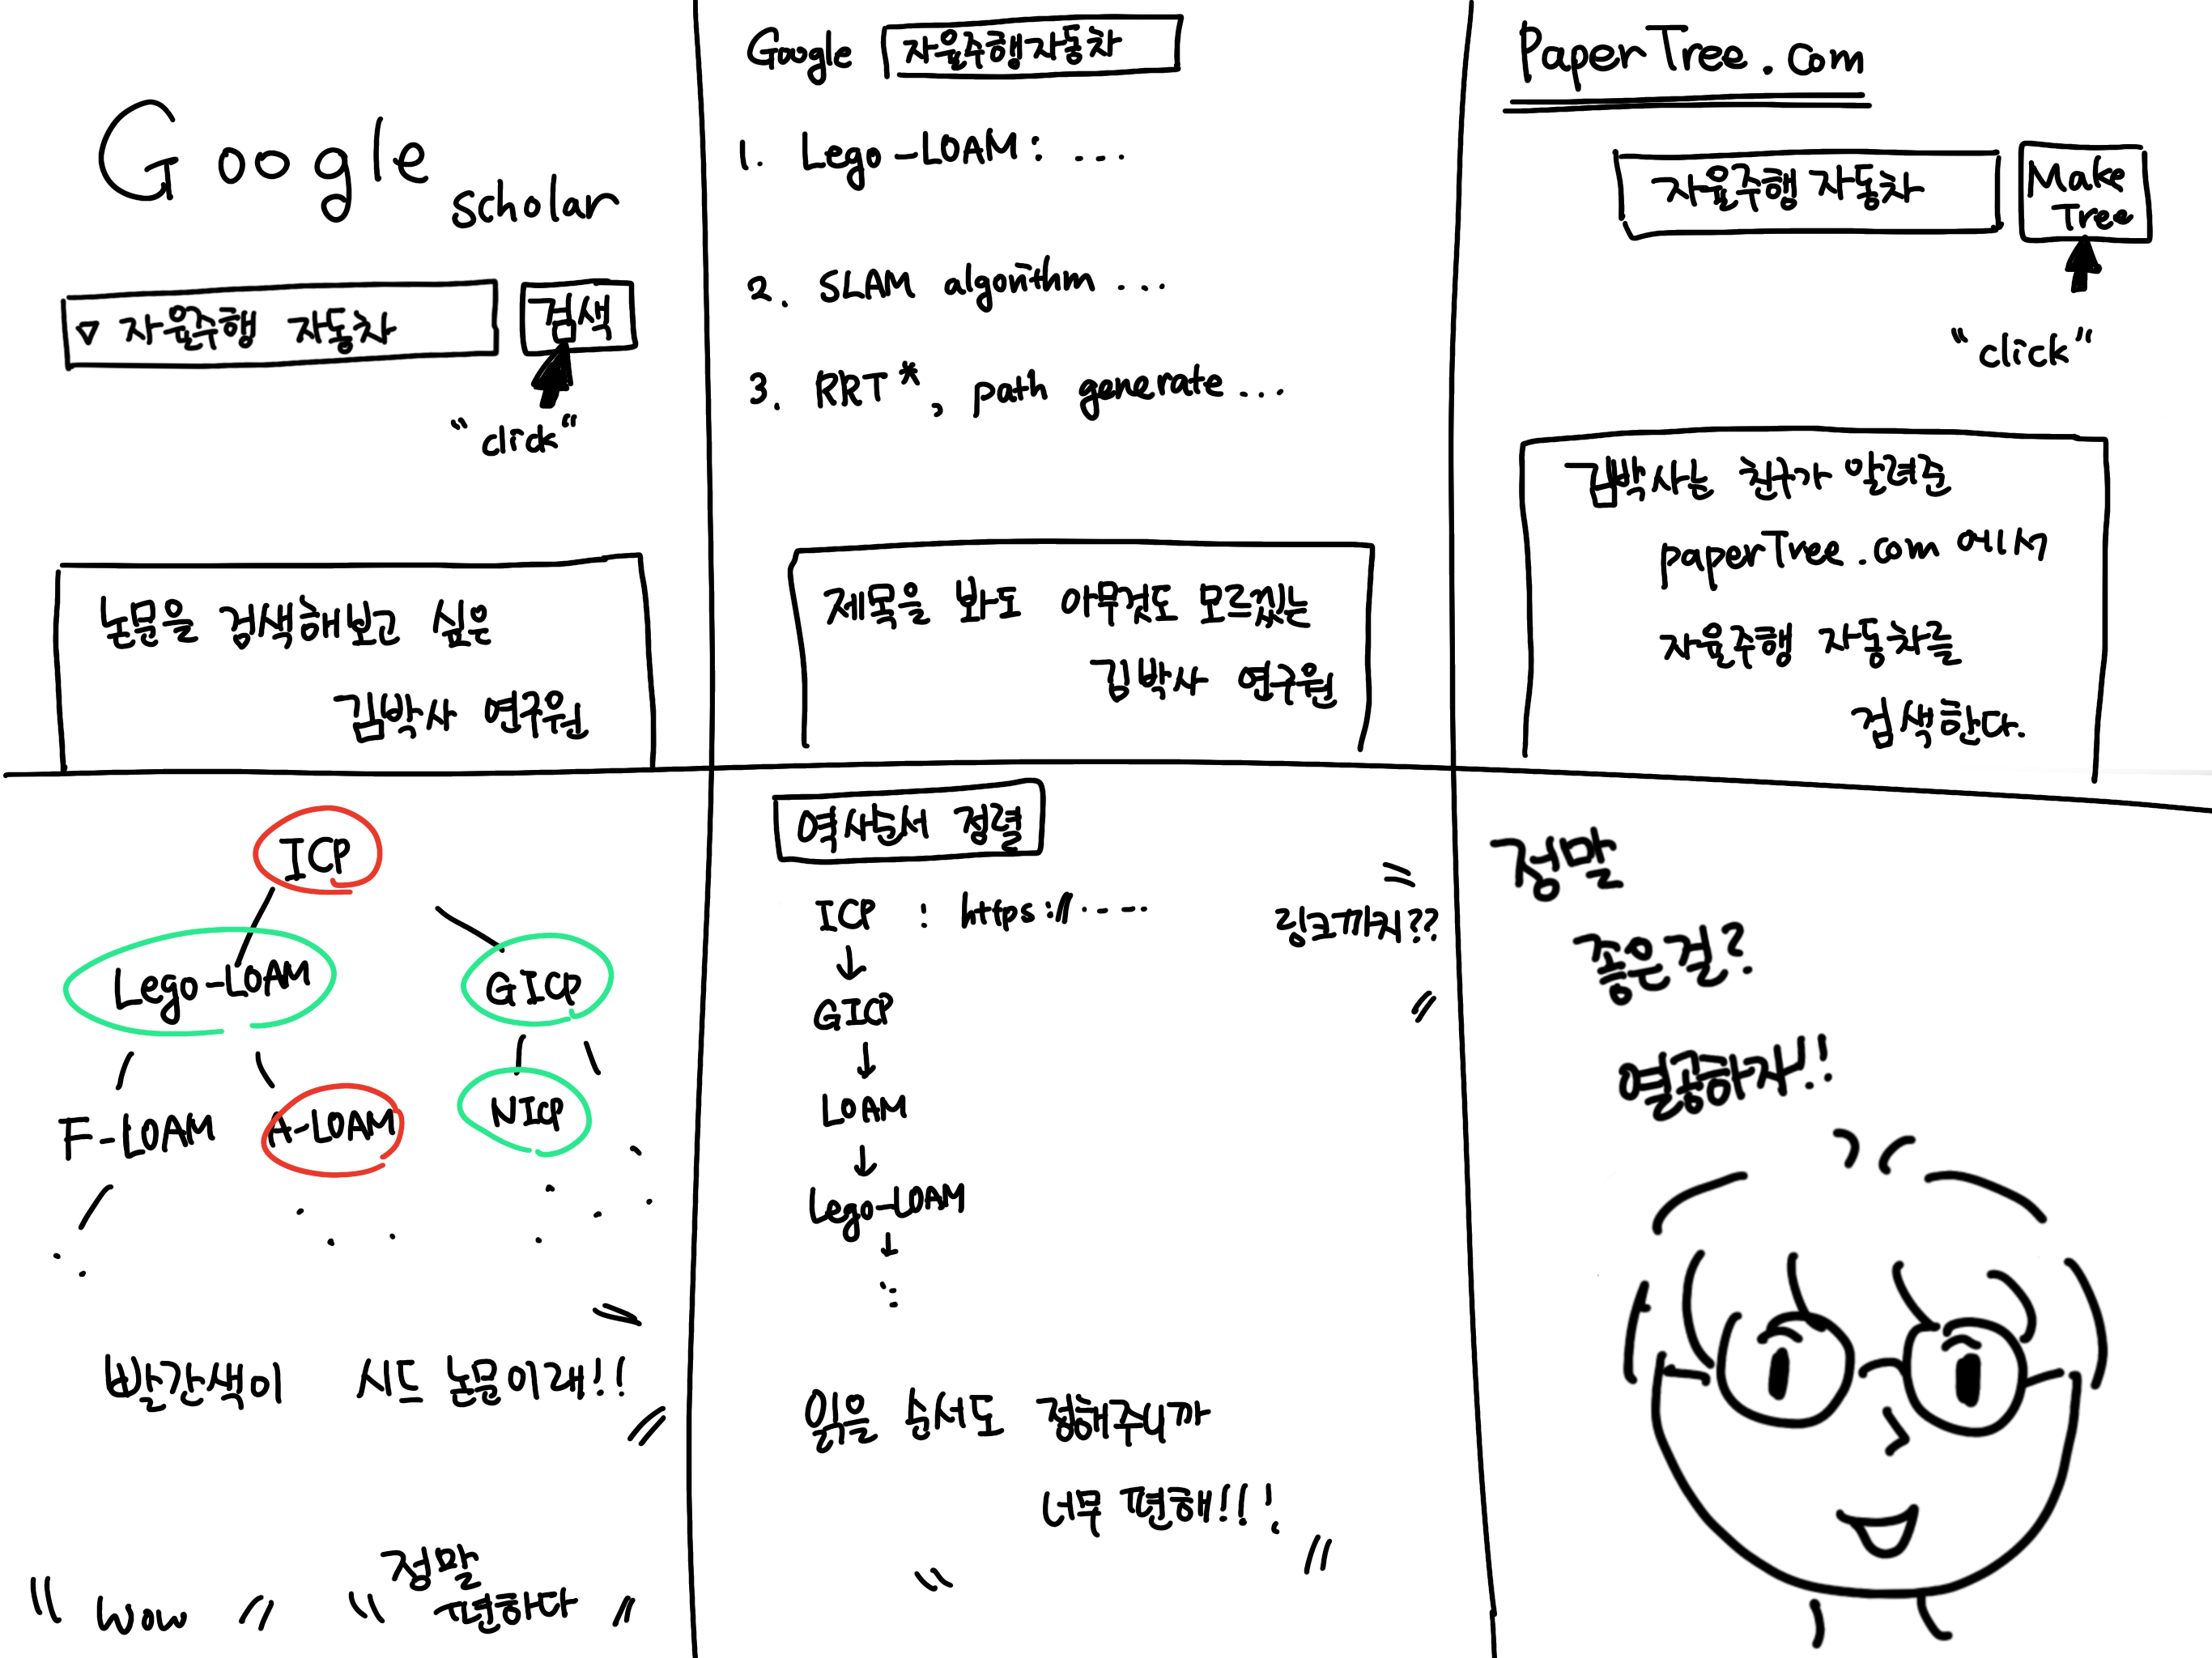 Google scholar
▽ 자율주행 자동차
검색
"click"
논문을 검색해보고 싶은
김박사 연구원
Google 자율주행자동차
1. Lego-LOAM: ...
2. SLAM algorithm ...
3. RRT*, path generate ...
제목을 봐도 아무것도 모르겠는
김박사 연구원
PaperTree.com
자율주행 자동차
Make
Tree
"click"
김박사는 친구가 알려준
paperTree.com 에서
자율주행 자동차를
검색한다.
ICP
Lego-LOAM
GICP
F-LOAM
A-LOAM
NICP
빨간색이 시드 논문이래!!
"wow"
"정말
편하다"
역사순서 정렬
ICP : https://.----
링크까지??
↓
GICP
↓
LOAM
↓
Lego-LOAM
↓
읽을 순서도 정해주니까
너무 편해!!!
정말
좋은걸?
열공하자!!